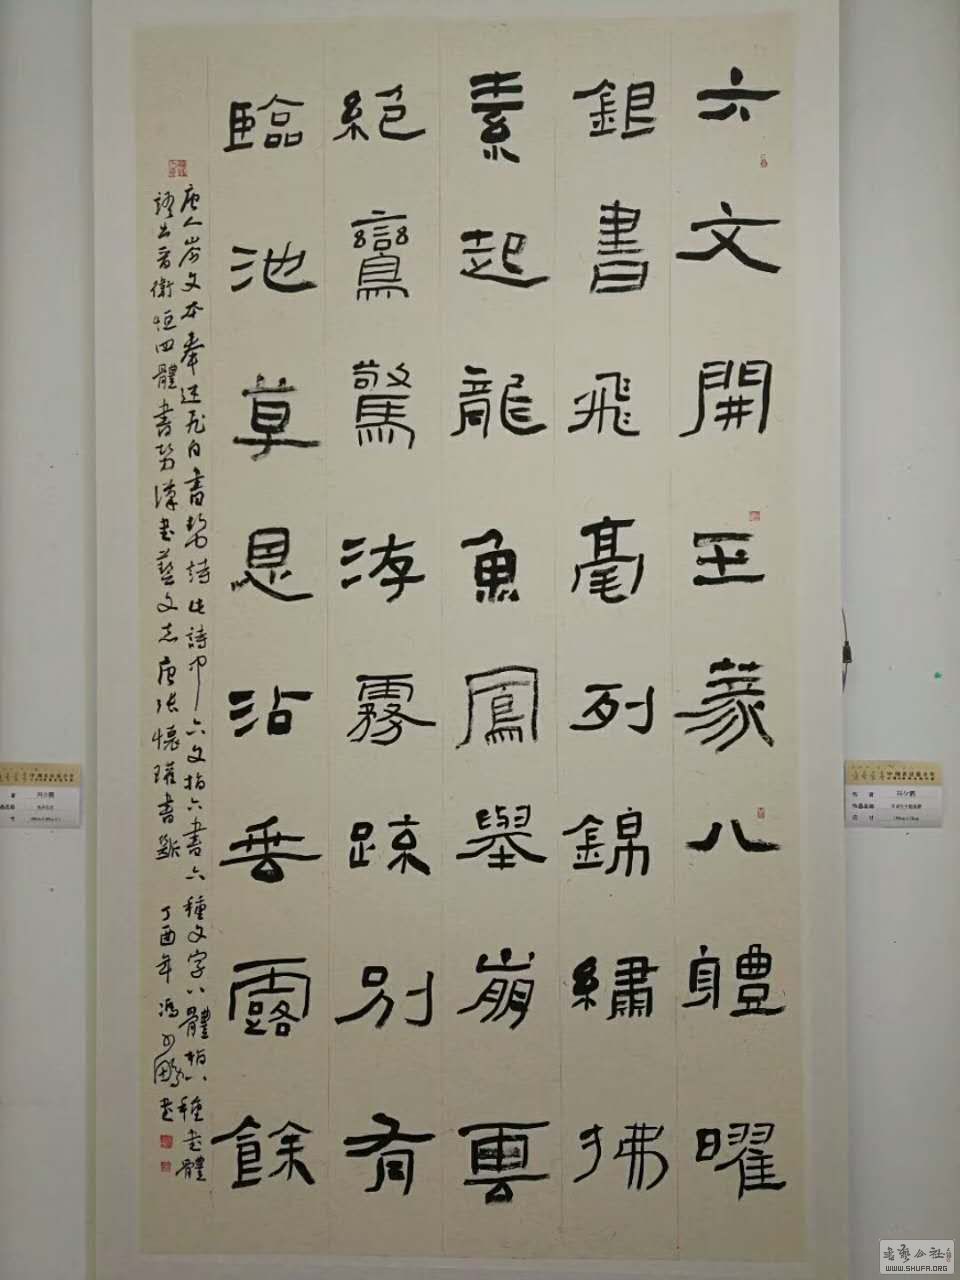 六文開玉篆八體曜
銀書飛毫列錦繡拂
素起龍魚鳳舉崩雲
絕鸞驚游霧疎別有
臨池草恩沾垂露餘
唐人岑文本奉述飛白書勢詩此詩中六文指六書六種文字八體指八種書體
語出晉衛恒四體書勢漢書藝文志唐張懷瓘書斷 丁酉年馮少鵬書
書藝公社
WWW.SHUFA.ORG